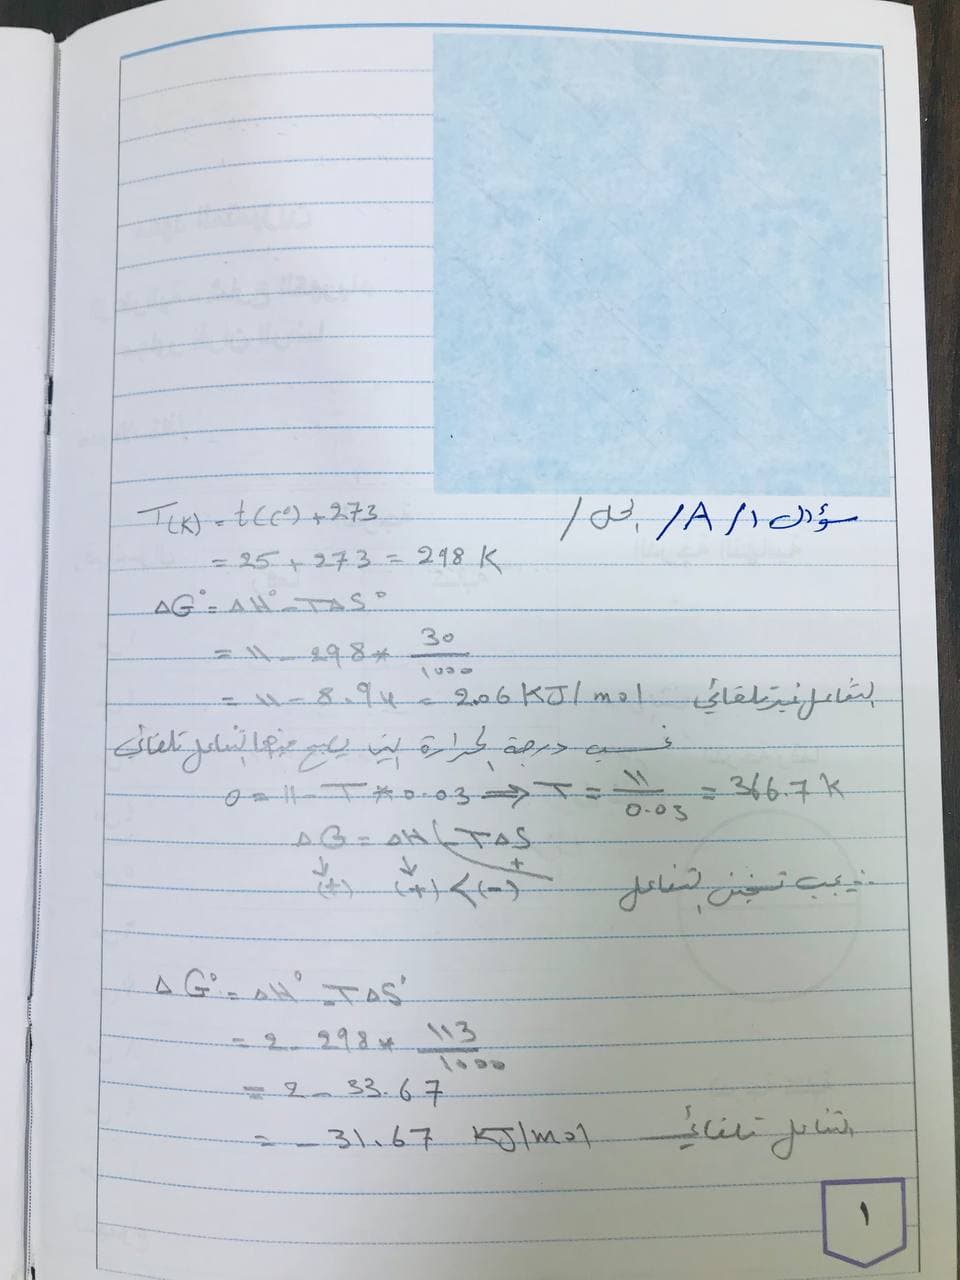 سؤال 1/ A/ الحل/
T(K) = t(C°) + 273
= 25 + 273 = 298 K
ΔG° = ΔH° - TΔS°
= 11 - 298 * 30/1000
= 11 - 8.94 = 2.06 KJ/mol التفاعل غير تلقائي
نحسب درجة الحرارة التي يصبح عندها التفاعل تلقائي
0 = 11 - T * 0.03 ⟹ T = 11/0.03 = 366.7 K
ΔG = ΔH - TΔS
↓ ↓ +
(+) (+) < (-) يجب تسخين التفاعل
ΔG° = ΔH° - TΔS°
= 2 - 298 * 113/1000
= 2 - 33.67
= - 31.67 KJ/mol التفاعل تلقائي
١